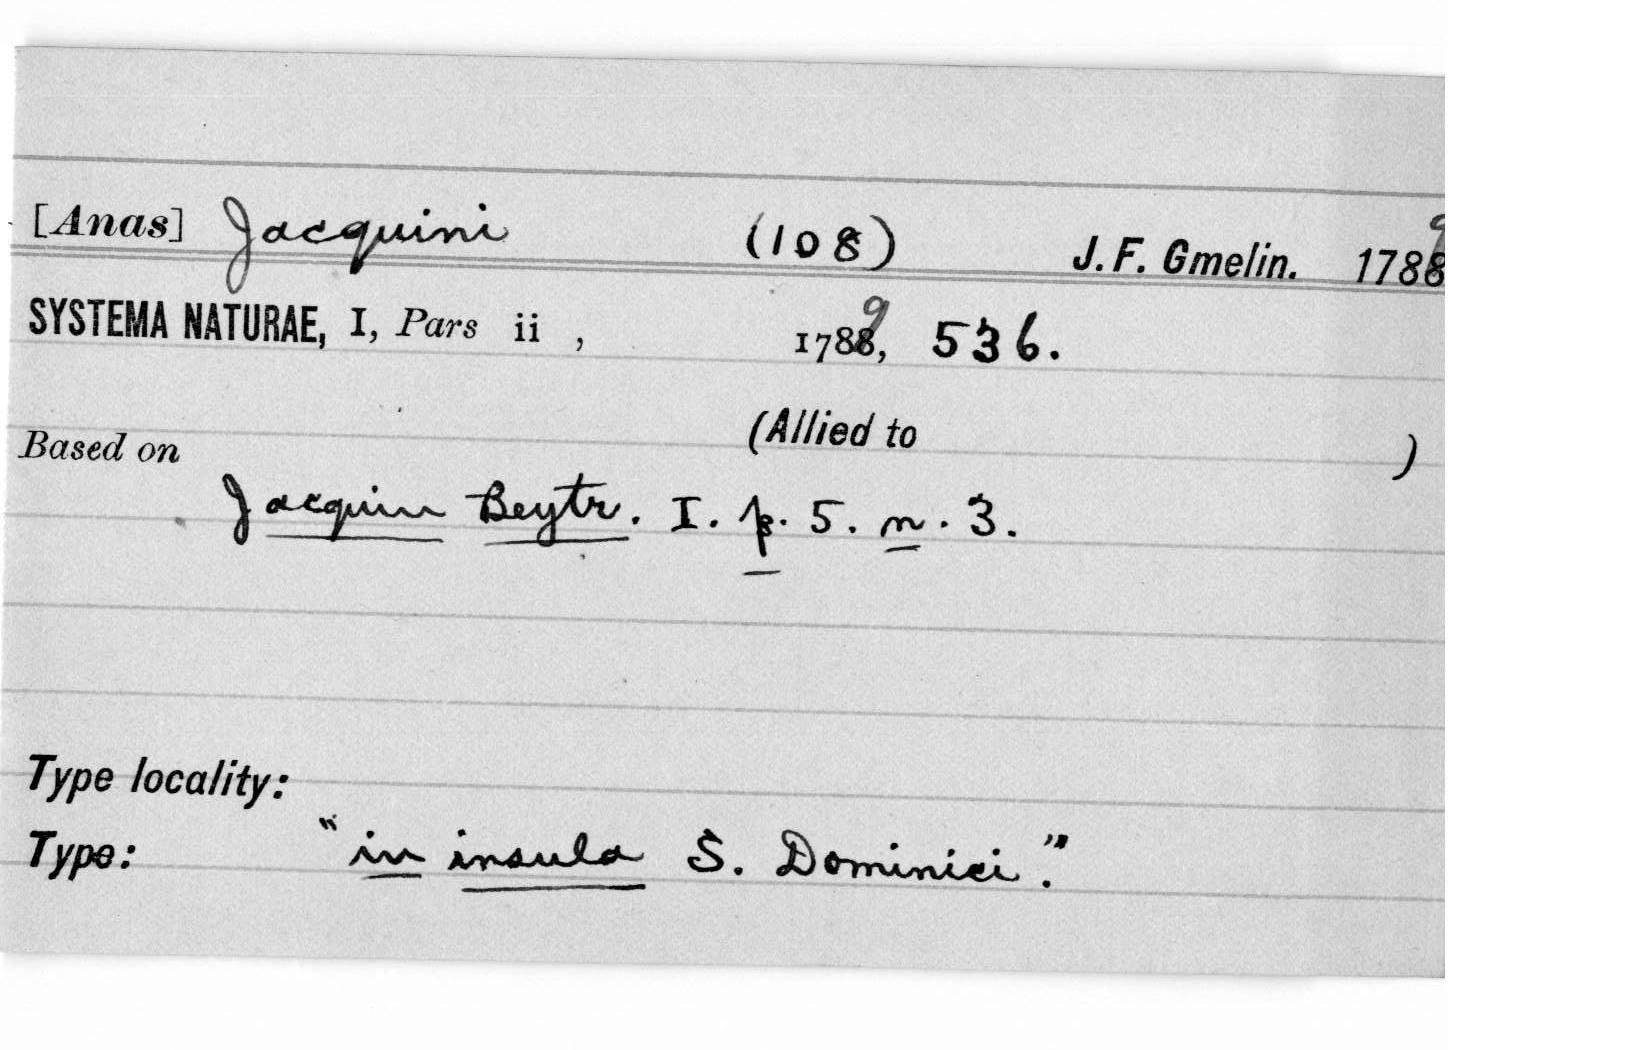 [Anas] Jacquini (108) J. F. Gmelin. 1789
SYSTEMA NATURAE, I, Pars ii , 1789, 536.
Based on (Allied to )
Jacquin Beytr. I. p. 5. n. 3.
Type locality:
Type: "in insula S. Dominici."